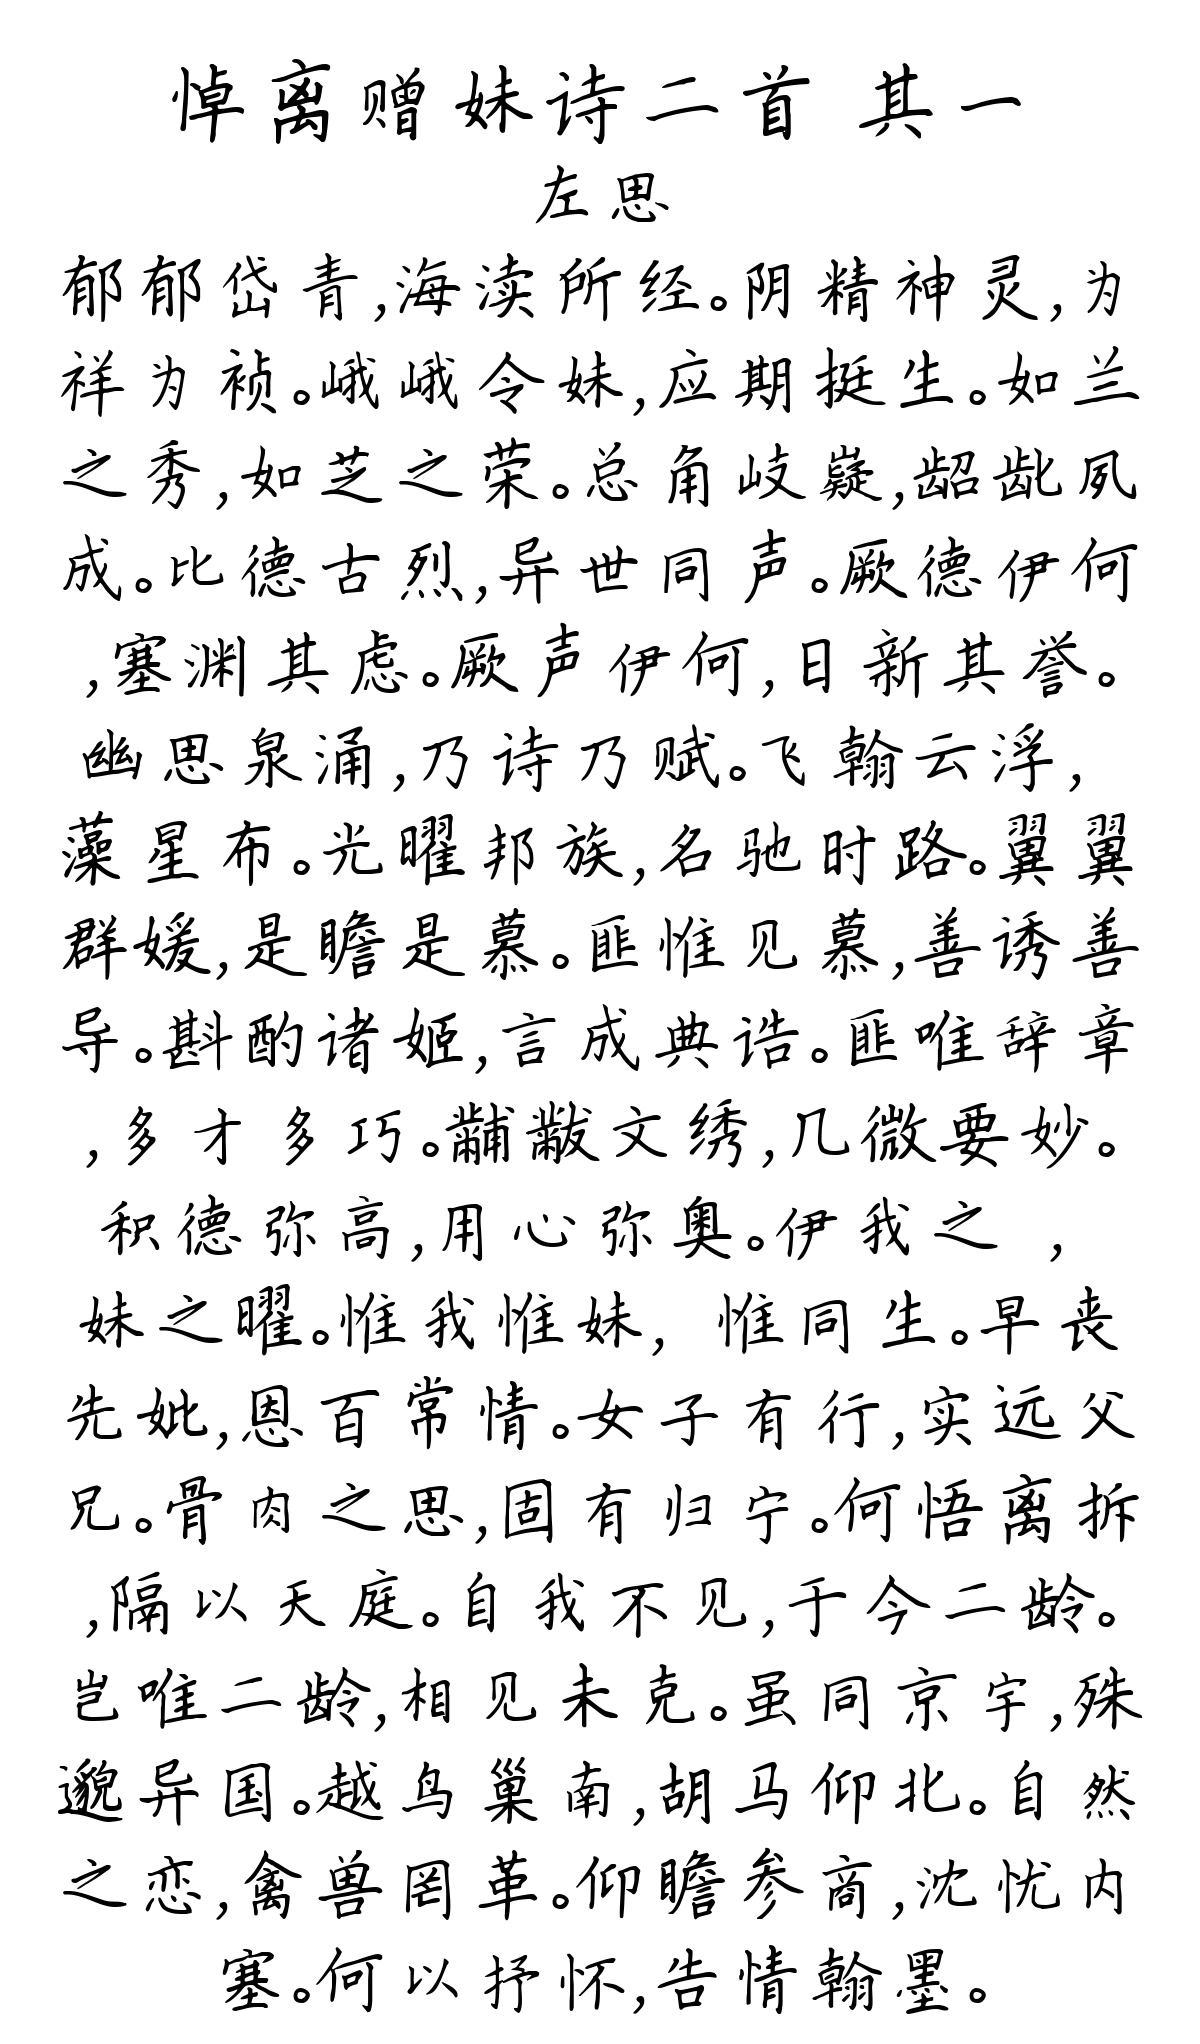 悼离赠妹诗二首 其一
左思
郁郁岱青,海渎所经。阴精神灵,为
祥为祯。峨峨令妹,应期挺生。如兰
之秀,如芝之荣。总角岐嶷,龆龀夙
成。比德古烈,异世同声。厥德伊何
,塞渊其虑。厥声伊何,日新其誉。
幽思泉涌,乃诗乃赋。飞翰云浮,
藻星布。光曜邦族,名驰时路。翼翼
群媛,是瞻是慕。匪惟见慕,善诱善
导。斟酌诸姬,言成典诰。匪唯辞章
,多才多巧。黼黻文绣,几微要妙。
积德弥高,用心弥奥。伊我之 ,
妹之曜。惟我惟妹, 惟同生。早丧
先妣,恩百常情。女子有行,实远父
兄。骨肉之思,固有归宁。何悟离拆
,隔以天庭。自我不见,于今二龄。
岂唯二龄,相见未克。虽同京宇,殊
邈异国。越鸟巢南,胡马仰北。自然
之恋,禽兽罔革。仰瞻参商,沈忧内
塞。何以抒怀,告情翰墨。